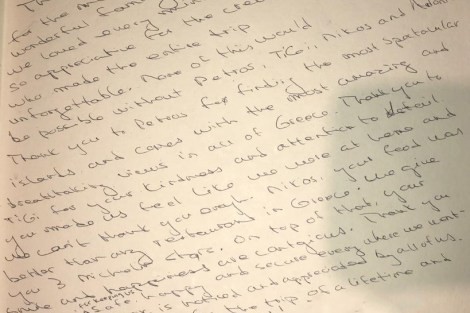 for the m
wonderful fam
we loved every
so appreciative for the cre
who made the entire trip
unforgettable. None of this would
be possible without Petros, TiGi, Nikos and
Thank you to Petros for finding the most spectacular
islands and coves with the most amazing and
breathtaking views in all of Greece. Thank you to
TiGi for your kindness and attention to detail
you made us feel like we were at home and
we can't thank you enough. Nikos, your food was
better than any restaurant in Greece. We give
you 3 Michelin stars. On top of that, your
smile and happiness are contagious. Thank you
safe, happy and secure every where we went.
is noticed and appreciated by all of us.
for the trip of a lifetime and